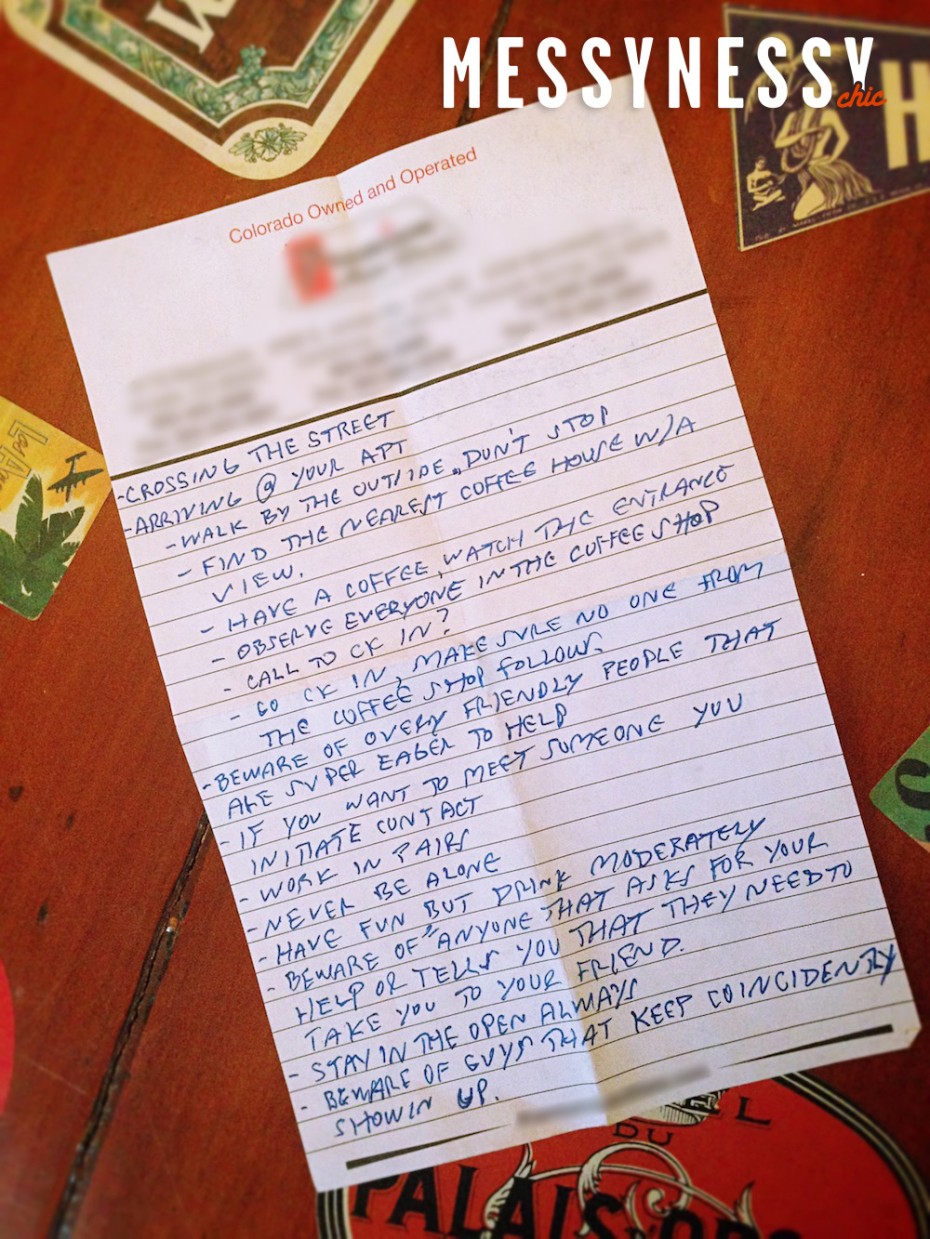 MESSYNESSY
chic
Colorado Owned and Operated
- CROSSING THE STREET
- ARRIVING @ YOUR APT
- WALK BY THE OUTSIDE. DON'T STOP
- FIND THE NEAREST COFFEE HOUSE W/A
VIEW.
- HAVE A COFFEE, WATCH THE ENTRANCE
- OBSERVE EVERYONE IN THE COFFEE SHOP
- CALL TO CK IN?
- GO CK IN, MAKE SURE NO ONE FROM
THE COFFEE SHOP FOLLOWS.
- BEWARE OF OVERY FRIENDLY PEOPLE THAT
ARE SUPER EAGER TO HELP
- IF YOU WANT TO MEET SOMEONE YOU
INITIATE CONTACT
- WORK IN PAIRS
- NEVER BE ALONE
- HAVE FUN BUT DRINK MODERATELY
- BEWARE OF "ANYONE THAT ASKS FOR YOUR
HELP OR TELLS YOU THAT THEY NEED TO
TAKE YOU TO YOUR FRIEND.
- STAY IN THE OPEN ALWAYS
- BEWARE OF GUYS THAT KEEP COINCIDENTLY
SHOWIN UP.
DU
PALAIS